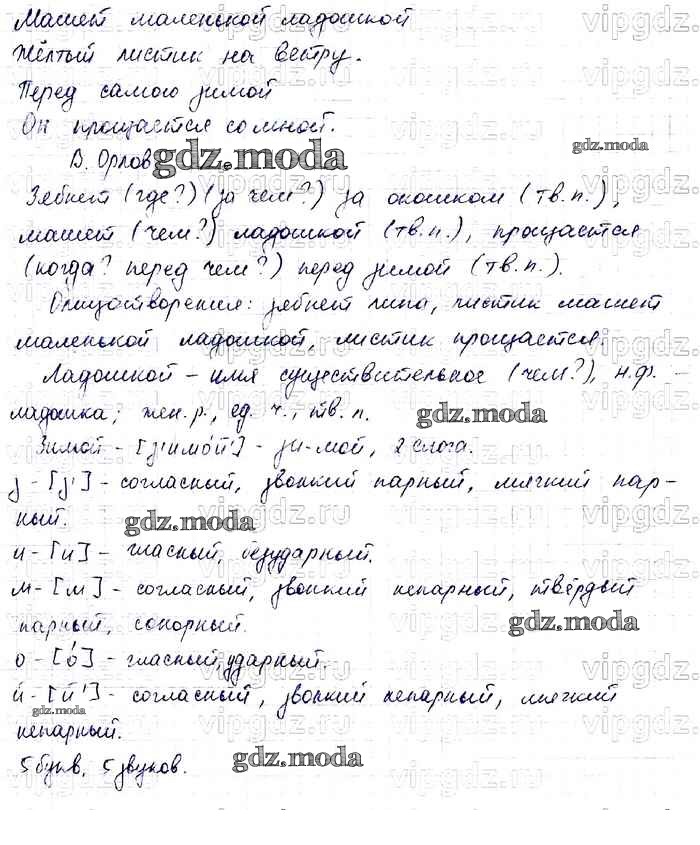 Машет маленькой ладошкой
Жёлтый листик на ветру.
Перед самою зимой
Он прощается со мной.
В. Орлов
Зябнет (где?) (за чем?) за окошком (тв.п.),
машет (чем?) ладошкой (тв.п.), прощается
(когда? перед чем?) перед зимой (тв.п.).
Олицетворения: зябнет липа, листик машет
маленькой ладошкой, листик прощается.
Ладошкой – имя существительное (чем?), н.ф. –
ладошка; жен.р., ед. ч., тв. п.
Зимой – [з'имо́й'] – зи-мой, 2 слога.
з – [з'] – согласный, звонкий парный, мягкий пар-
ный.
и – [и] – гласный, безударный.
м – [м] – согласный, звонкий непарный, твёрдый
парный, сонорный.
о – [о́] – гласный, ударный.
й – [й'] – согласный, звонкий непарный, мягкий
непарный.
5 букв, 5 звуков.
gdz.moda
gdz.moda
gdz.moda
gdz.moda
gdz.moda
gdz.moda
gdz.moda
vipgdz.ru